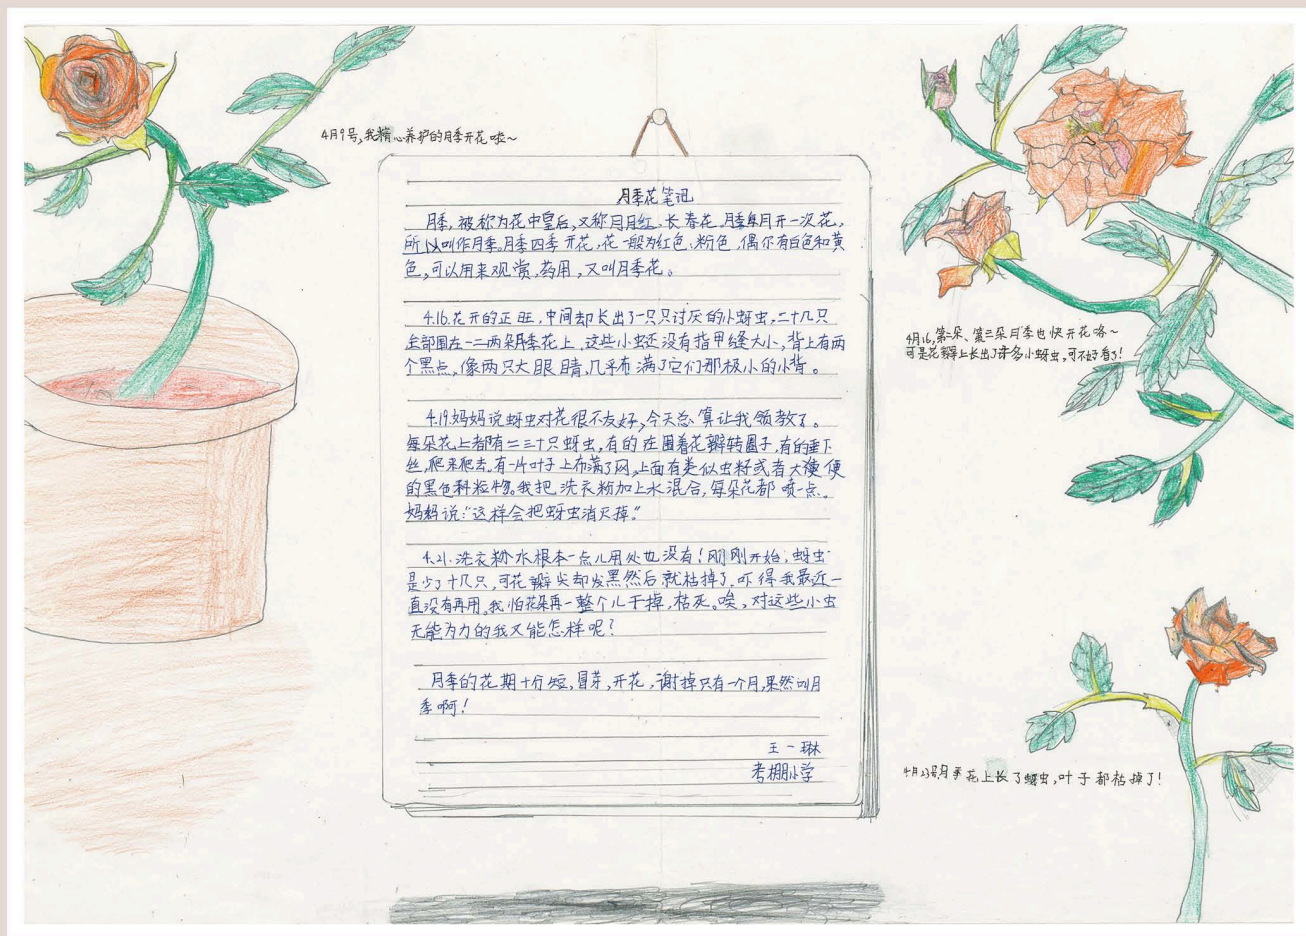 4月9号,我精心养护的月季开花啦~
月季花笔记
月季,被称为花中皇后,又称月月红、长春花。月季每月开一次花,
所以叫作月季。月季四季开花,花一般为红色、粉色,偶尔有白色和黄
色,可以用来观赏、药用,又叫月季花。
4.16.花开的正旺,中间却长出了一只只讨厌的小蚜虫,二十几只
全部围在一二两朵月季花上,这些小虫还没有指甲缝大小,背上有两
个黑点,像两只大眼睛,几乎布满了它们那极小的小背。
4.19.妈妈说蚜虫对花很不友好,今天总算让我领教了。
每朵花上都有二三十只蚜虫,有的在围着花瓣转圈子,有的垂下
丝,爬来爬去,有一片叶子上布满了网,上面有类似虫籽或者大便
的黑色颗粒物。我把洗衣粉加上水混合,每朵花都喷一点。
妈妈说:“这样会把蚜虫消灭掉。”
4.21.洗衣粉水根本一点儿用处也没有!刚刚开始,蚜虫
是少了十几只,可花瓣尖却发黑然后就枯掉了,吓得我最近一
直没有再用。我怕花朵再一整个儿干掉,枯死。唉,对这些小虫
无能为力的我又能怎样呢?
月季的花期十分短,冒芽,开花,谢掉只有一个月,果然叫月
季啊!
王一琳
考棚小学
4月16,第一朵、第二朵月季也快开花咯~
可是花瓣上长出了许多小蚜虫,可不好看了!
4月23号月季花上长了蚜虫,叶子都枯掉了!